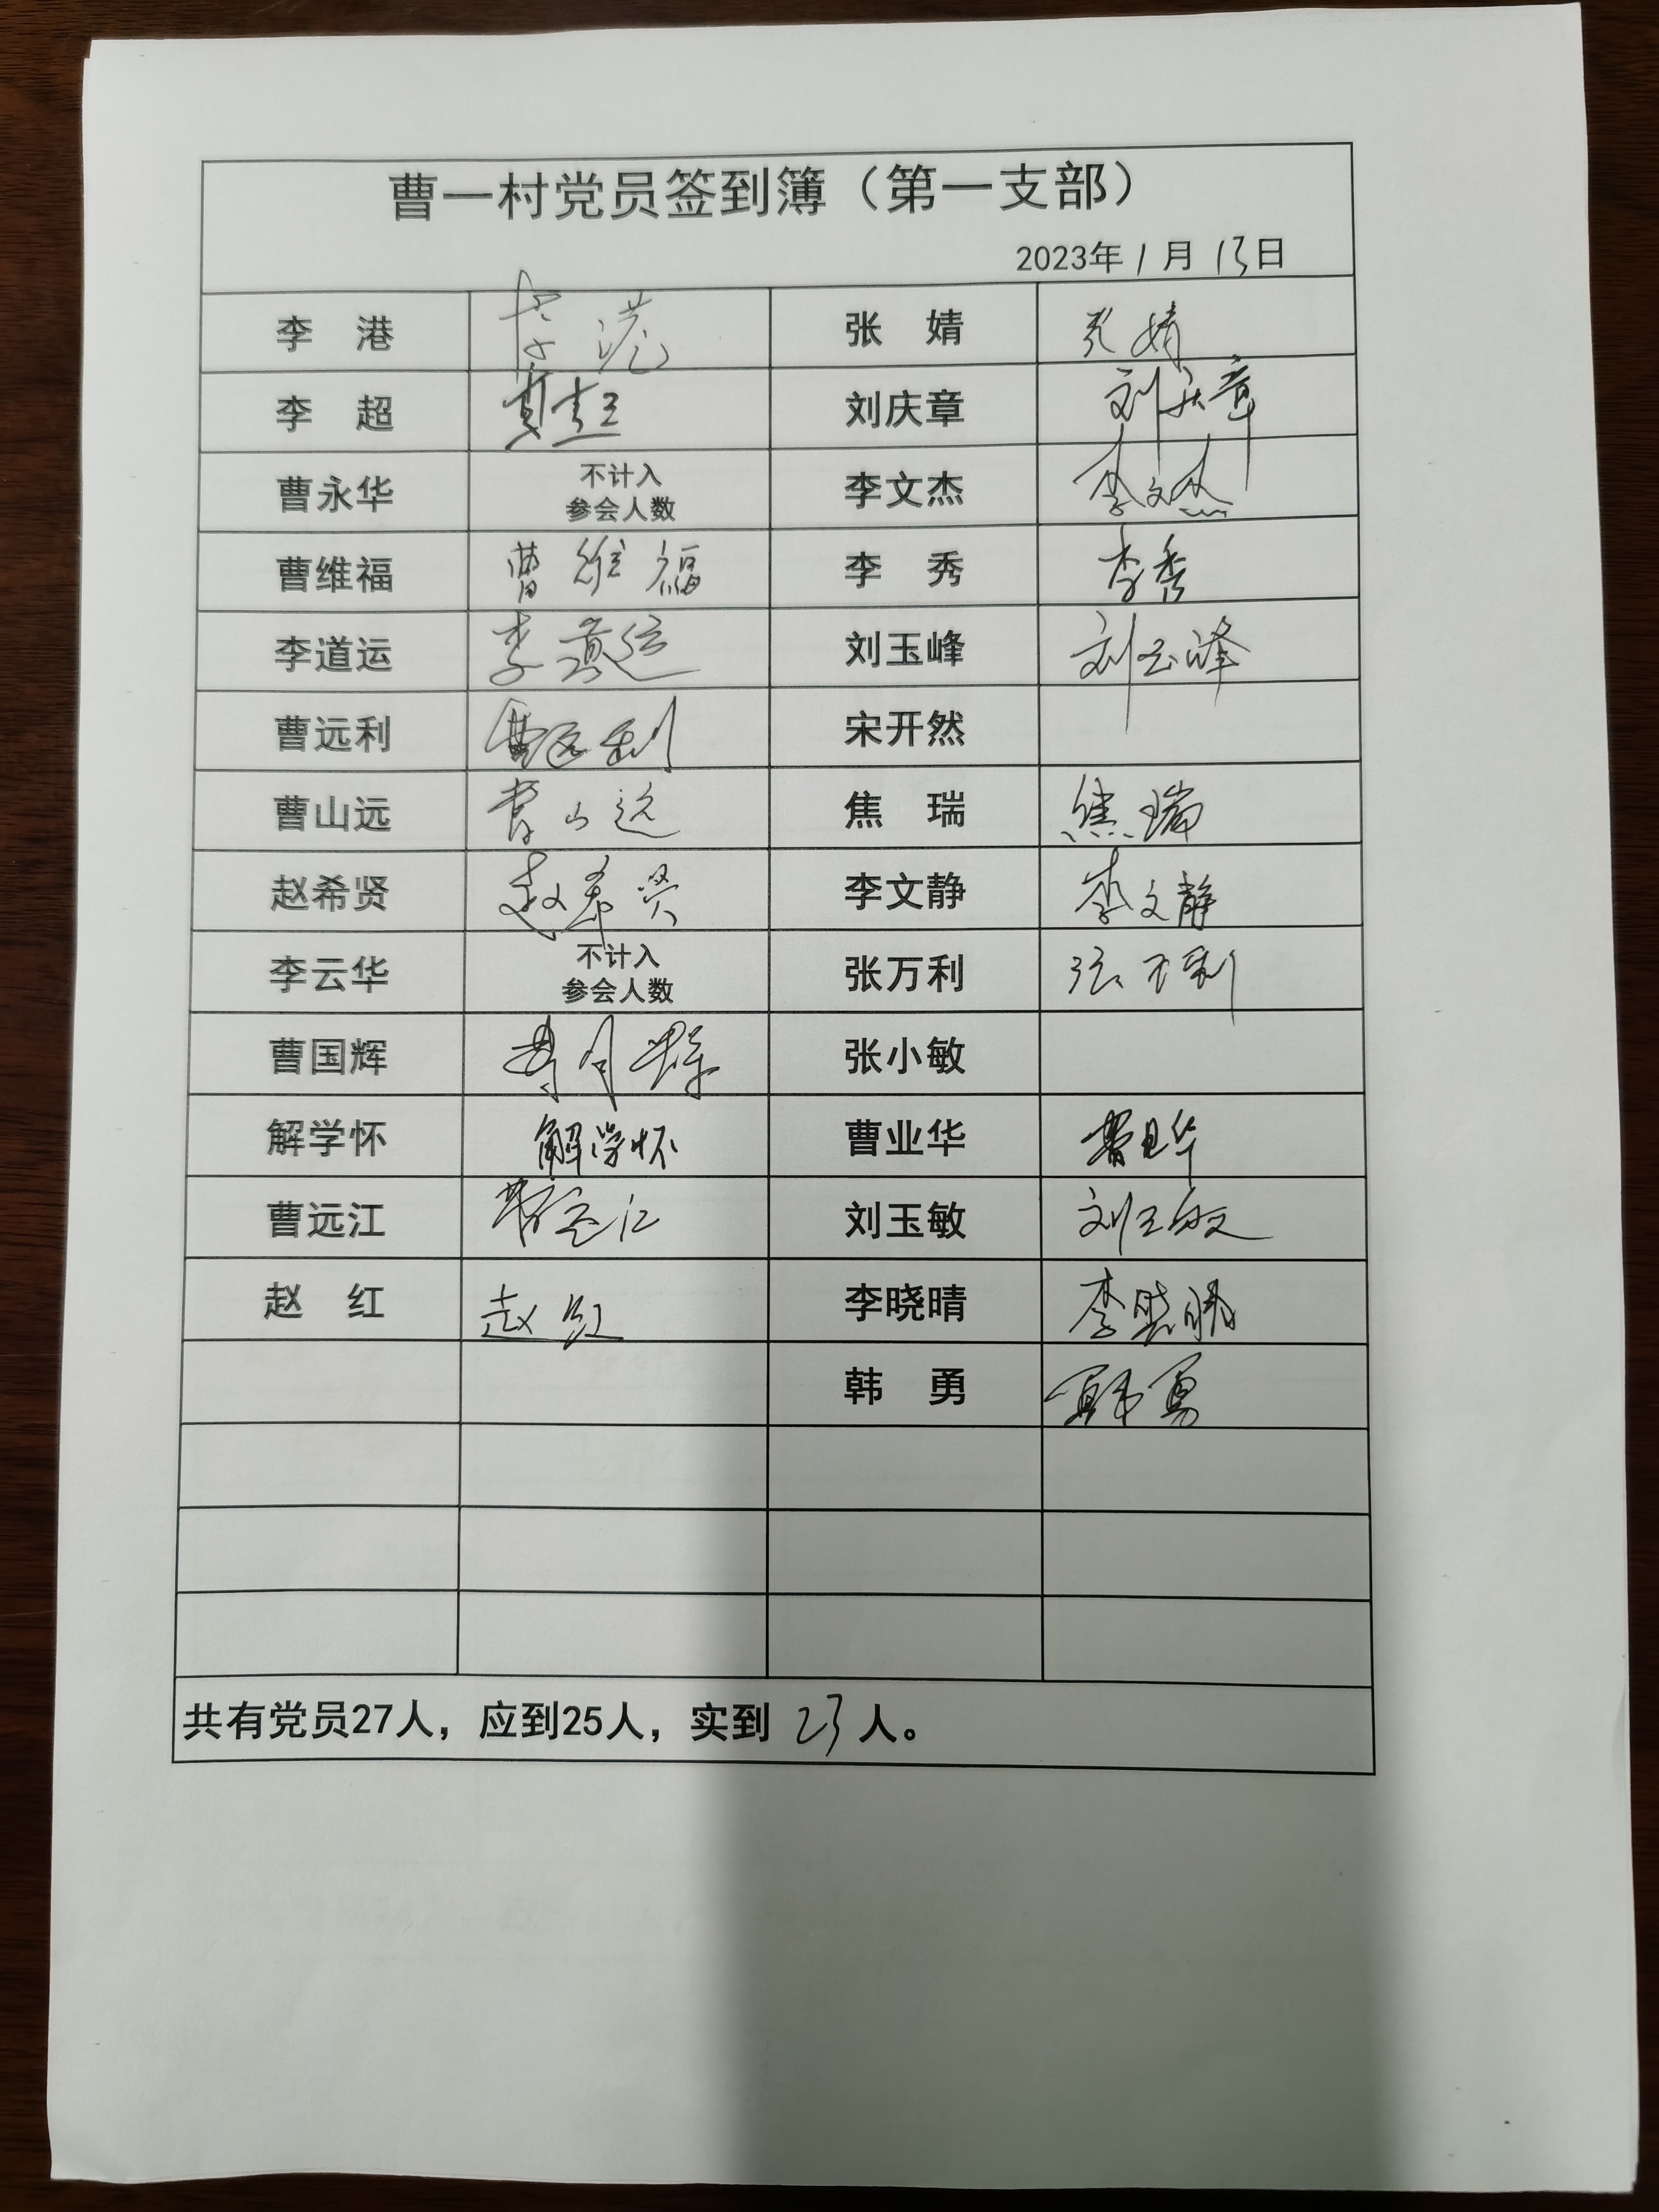 曹一村党员签到簿（第一支部）
2023年1月13日
李 港 李港 张 婧 张婧
李 超 李超 刘庆章 刘庆章
曹永华 不计入 李文杰 李文杰
参会人数
曹维福 曹维福 李 秀 李秀
李道运 李道运 刘玉峰 刘玉峰
曹远利 曹远利 宋开然
曹山远 曹山远 焦 瑞 焦瑞
赵希贤 赵希贤 李文静 李文静
李云华 不计入 张万利 张万利
参会人数
曹国辉 曹国辉 张小敏
解学怀 解学怀 曹业华 曹业华
曹远江 曹远江 刘玉敏 刘玉敏
赵 红 赵红 李晓晴 李晓晴
韩 勇 韩勇
共有党员27人，应到25人，实到 23 人。